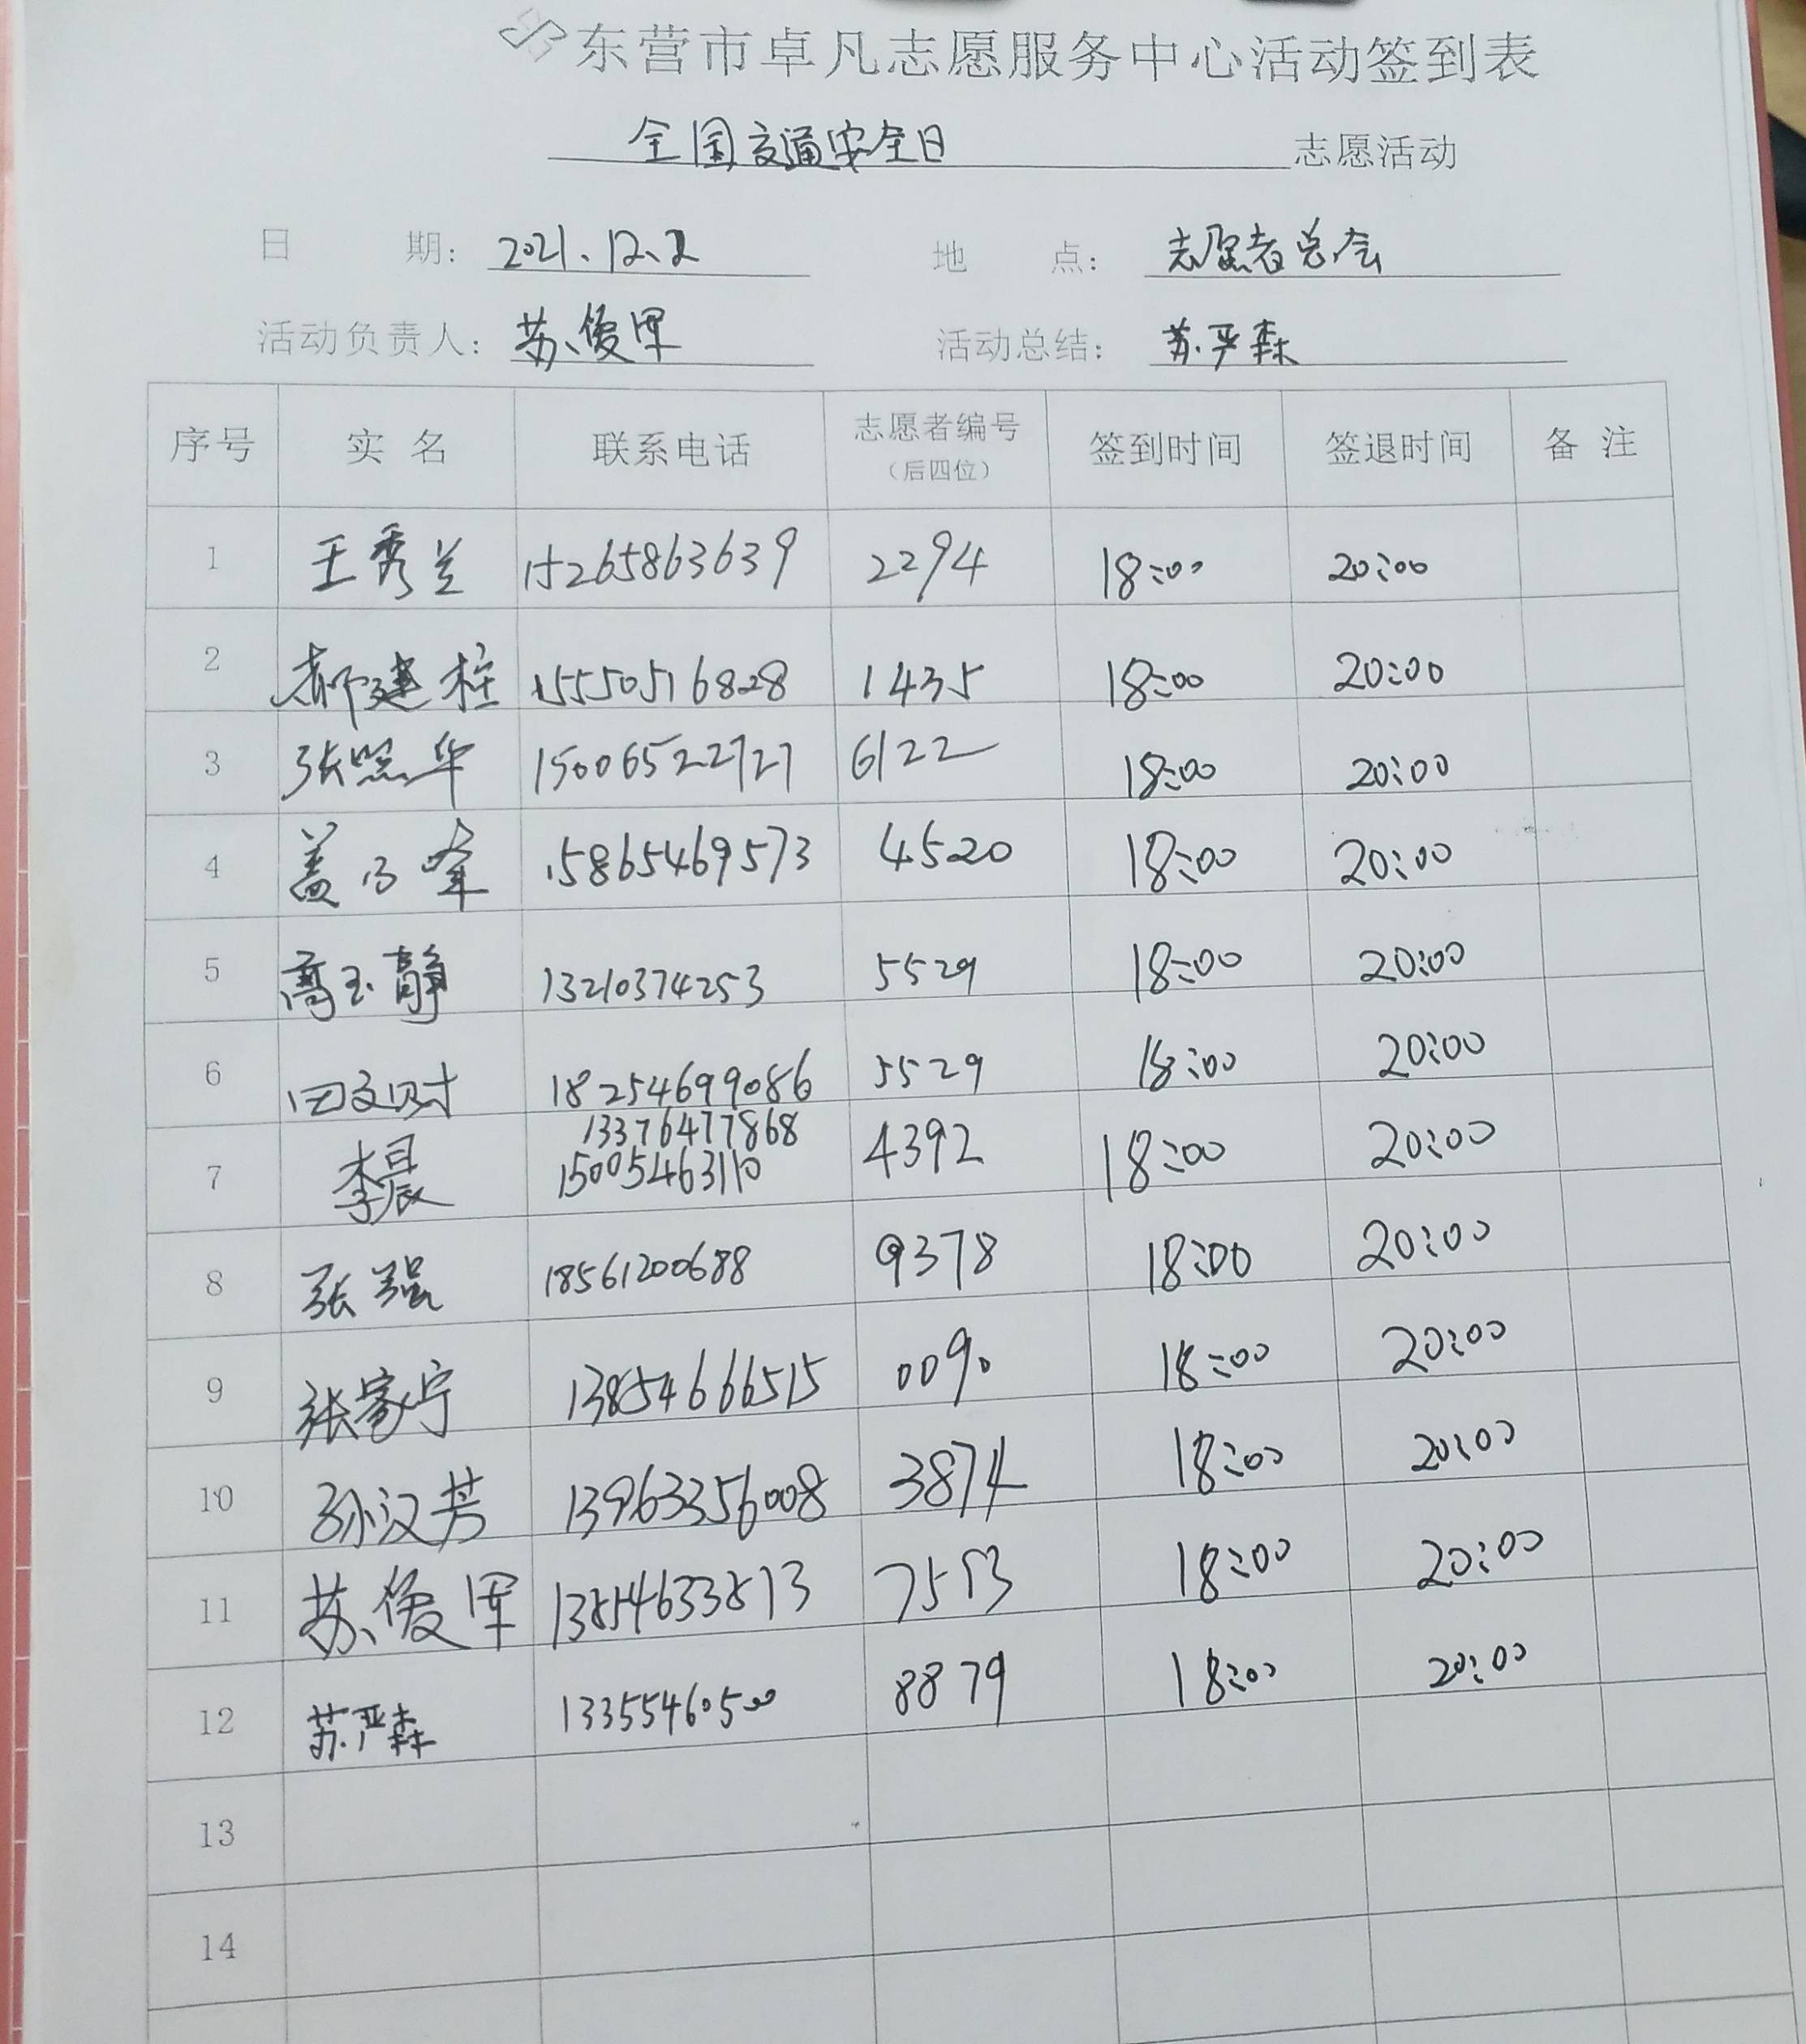 东营市卓凡志愿服务中心活动签到表
全国交通安全日 志愿活动
日 期: 2021.12.2 地 点: 志愿者总会
活动负责人: 苏俊军 活动总结: 苏严森
序号 实 名 联系电话 志愿者编号(后四位) 签到时间 签退时间 备 注
1 王秀兰 15265863639 2294 18:00 20:00
2 郝建柱 15550516828 1435 18:00 20:00
3 张照华 15006522727 6122 18:00 20:00
4 盖乃峰 15865469573 4520 18:00 20:00
5 高玉静 13210374253 5529 18:00 20:00
6 田文财 18254699086 5529 18:00 20:00
13376477868
7 李晨 15005463110 4392 18:00 20:00
8 张强 18561200688 9378 18:00 20:00
9 张家宁 13854666515 0090 18:00 20:00
10 孙汉芳 13963356008 3874 18:00 20:00
11 苏俊军 13854633813 7553 18:00 20:00
12 苏严森 13355460500 8879 18:00 20:00
13
14